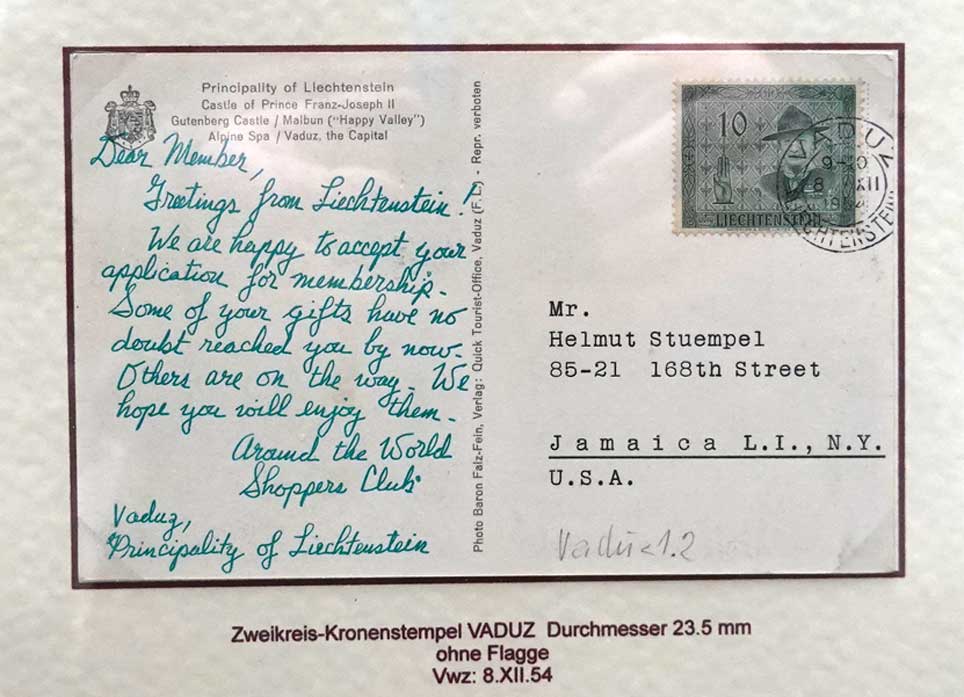 Principality of Liechtenstein
Castle of Prince Franz-Joseph II
Gutenberg Castle / Malbun ("Happy Valley")
Alpine Spa / Vaduz, the Capital
Dear Member,
Greetings from Liechtenstein!
We are happy to accept your
application for membership.
Some of your gifts have no
doubt reached you by now.
Others are on the way. We
hope you will enjoy them.
Around the World
Shoppers Club
Vaduz,
Principality of Liechtenstein
Photo Baron Falz-Fein, Verlag: Quick Tourist-Office, Vaduz (F. L.) - Repr. verboten
10
LIECHTENSTEIN
VADUZ
8 XII
LIECHTENSTEIN
Mr.
Helmut Stuempel
85-21 168th Street
Jamaica L.I., N.Y.
U.S.A.
Vaduz 1.2
Zweikreis-Kronenstempel VADUZ Durchmesser 23.5 mm
ohne Flagge
Vwz: 8.XII.54